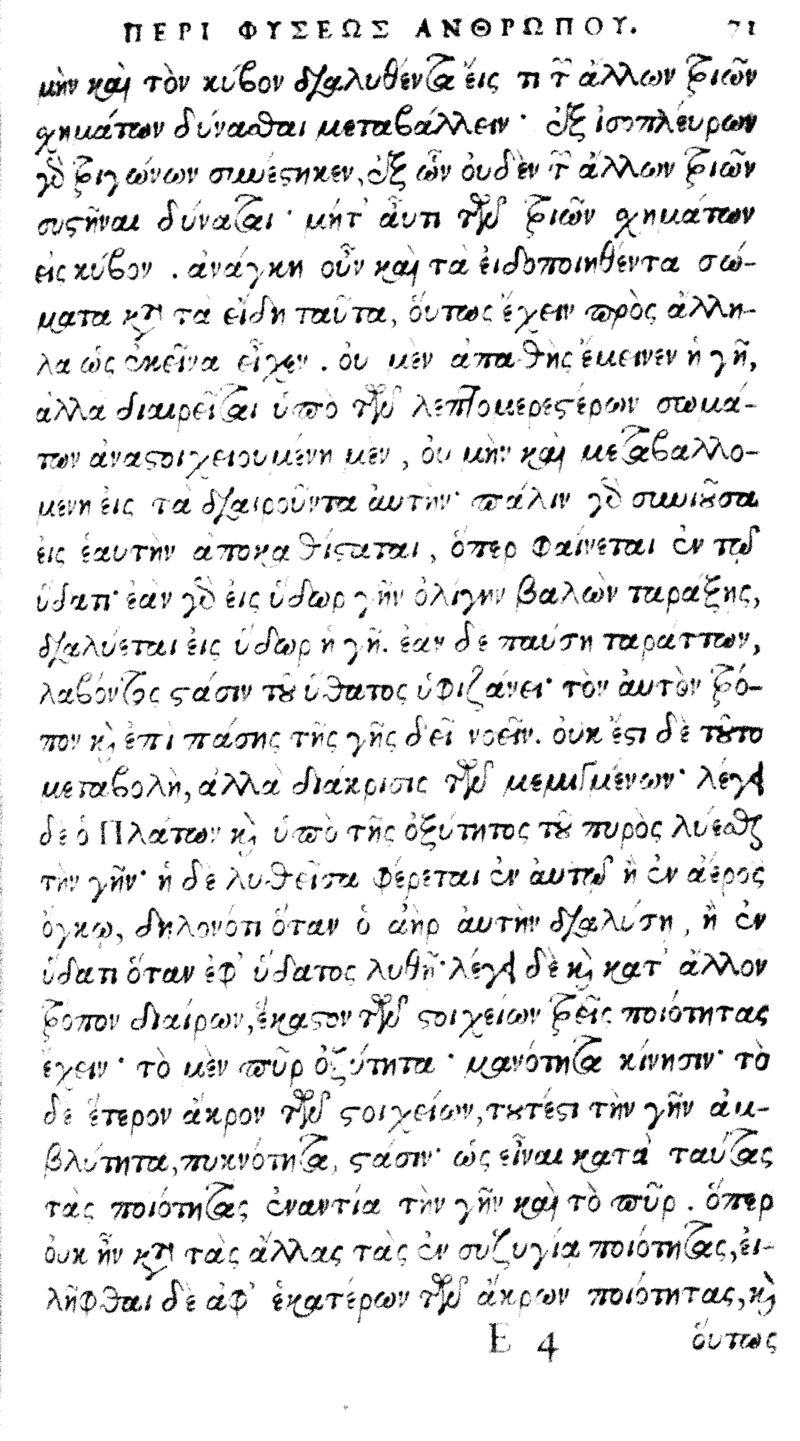 ΠΕΡΙ ΦΥΣΕΩΣ ΑΝΘΡΩΠΟΥ. 71
μὴν καὶ τὸν κύβον διαλυθέντα εἴς τι τῶν ἄλλων τριῶν
χημάτων δύναϑαι μεταβάλλειν· ἐξ ἰσοπλεύρων
γὸ τριγώνων συνέςηκεν, ἐξ ὧν οὐδὲν τῶν ἄλλων τριῶν
συςῆναι δύναται· μήτ' αὖτι τῶν τριῶν χημάτων
εἰς κύβον . ἀνάγκη οὖν καὶ τὰ εἰδοποιηθέντα σώ-
ματα κατὰ τὰ εἴδη ταῦτα, ὅυτως ἔχειν πρὸς ἄλλη-
λα ὡς ἐκεῖνα εἶχεν . οὐ μὲν ἀπαθὴς ἔμεινεν ἡ γῆ,
ἀλλα διαιρεῖται ὑπὸ τῶν λεπτομερεςέρων σωμά-
των ἀναςοιχειουμένη μὲν , οὐ μὴν καὶ μεταβαλλο-
μένη εἰς τὰ διαιροῦντα ἀυτήν· πάλιν γὸ συνιοῦσα
εἰς ἑαυτὴν ἀποκαθίςαται, ὅπερ φαίνεται ἐν τῷ
ὕδατι· ἐὰν γὸ εἰς ὕδωρ γῆν ὀλίγην βαλὼν ταράξης,
διαλύεται εἰς ὕδωρ ἡ γῆ. ἐὰν δὲ παύση ταράττων,
λαβόντος ςάσιν τοῦ ὕθατος ὑφιζάνει· τὸν ἀυτὸν τρό-
πον κὶ ἐπὶ πάσης τῆς γῆς δεῖ νοεῖν. οὐκ ἔςι δὲ τοῦτο
μεταβολὴ, ἀλλὰ διάκρισις τῶν μεμιγμένων· λέγει
δὲ ὁ Πλάτων κὶ ὑπὸ τῆς ὀξύτητος τοῦ πυρὸς λύεϑαι
τὴν γῆν· ἡ δὲ λυθεῖσα φέρεται ἐν ἀυτῷ ἢ ἐν ἀέρος
ὄγκῳ, δηλονότι ὅταν ὁ ἀὴρ ἀυτὴν διαλύση, ἢ ἐν
ὕδατι ὅταν ἐφ' ὕδατος λυθῇ· λέγει δὲ κὶ κατ' ἄλλον
τρόπον διαίρων, ἕκαςον τῶν ςοιχείων τρεῖς ποιότητας
ἔχειν· τὸ μὲν πῦρ ὀξύτητα· μανότητα κίνησιν· τὸ
δὲ ἕτερον ἄκρον τῶν ςοιχείων, τουτέςι τὴν γῆν ἀμ-
βλύτητα, πυκνότητα, ςάσιν· ὡς εἶναι κατὰ ταύτας
τὰς ποιότητας ἐναντία τὴν γῆν καὶ τὸ πῦρ . ὅπερ
οὐκ ἦν κατὰ τὰς ἄλλας τὰς ἐν συζυγίᾳ ποιότητας, εἰ-
λῆφθαι δὲ ἀφ' ἑκατέρων τῶν ἄκρων ποιότητας, κὶ
E 4 ὅυτως